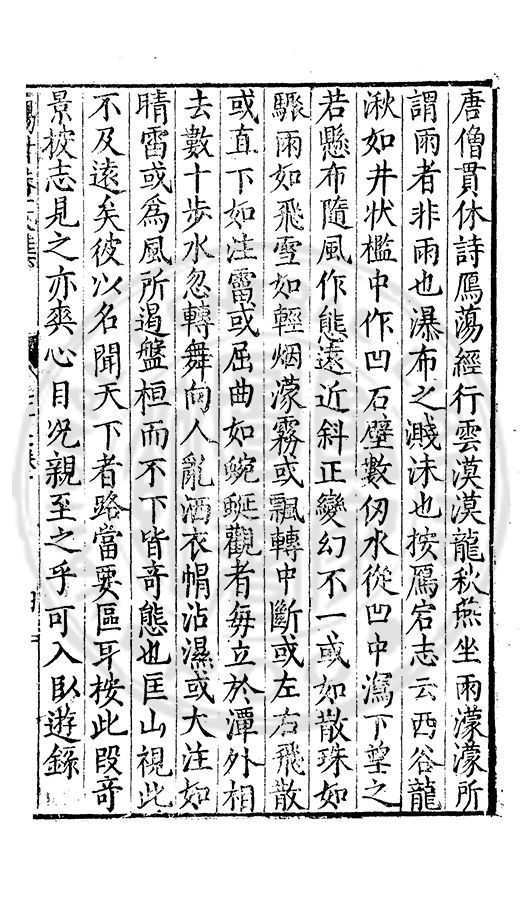 唐僧貫休詩鴈蕩經行雲漠漠龍秋燕坐雨濛濛所
謂雨者非雨也瀑布之濺沫也按鴈宕志云西谷龍
湫如井狀檻中作凹石壁數仞水從凹中瀉下望之
若懸布隨風作態遠近斜正變幻不一或如散珠如
驟雨如飛雪如輕烟濛霧或飄轉中斷或左右飛散
或直下如注霤或屈曲如蜿蜒觀者每立於潭外相
去數十步水忽轉舞向人亂洒衣帽沾濕或大注如
晴雷或為風所遏盤桓而不下皆竒態也匡山視此
不及遠矣彼以名聞天下者路當要區耳桉此段竒
景披志見之亦爽心目况親至之乎可入臥遊錄